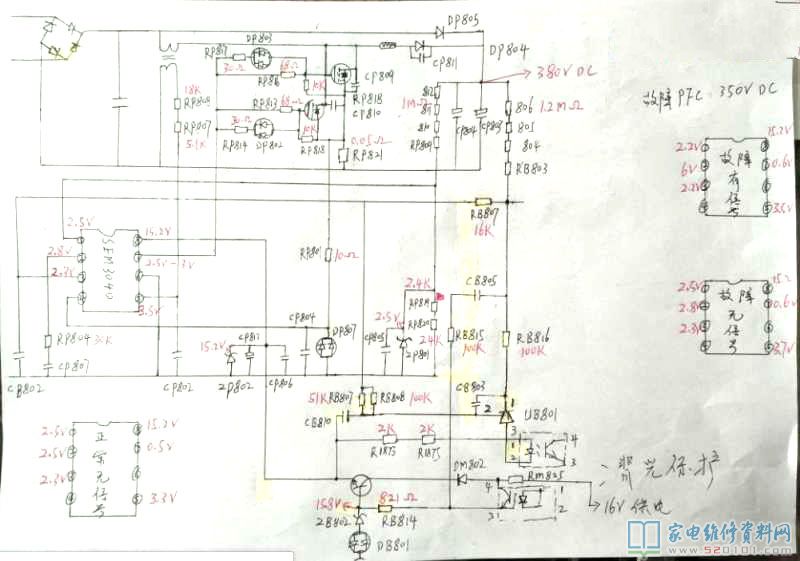 DP805
DP803
RP817
30Ω
RP816
68Ω
10K
CP809
CP811
DP804
380V DC
故障PFC:350V DC
18K
RP808
RP807
5.1K
RP813
68Ω
RP818
CP810
10K
30Ω
RP814
DP802
RP818
0.05Ω
RP821
812
1MΩ
811
810
RP809
CP804
CP803
806
1.2MΩ
805
804
RB803
2.2V
15.2V
6V
0.6V
2.2V
3.5V
故障有信号
RB807
16K
2.5V
15.2V
2.8V
2.5V-3V
2.3V
3.5V
SEM3040
RP801
10Ω
2.4K
CB805
2.5V
RP819
RP820
24K
ZP801
CP805
RB815
100K
RB816
100K
2.5V
15.2
2.8V
0.6V
2.3V
3.7V
故障无信号
RP804
3K
CP807
CB802
CP802
15.2V
ZP802
CP817
CP806
CP804
DP807
51K
RB807
RB808
100K
CB810
CB803
UB801
2K
2K
R1873
R1875
2.5V
15.2V
2.5V
0.5V
2.3V
3.3V
正常无信号
DM802
RM825
背光保护
16V供电
15.8V
ZB802
821Ω
RB814
DB801
家电维修资料网
www.520101.com